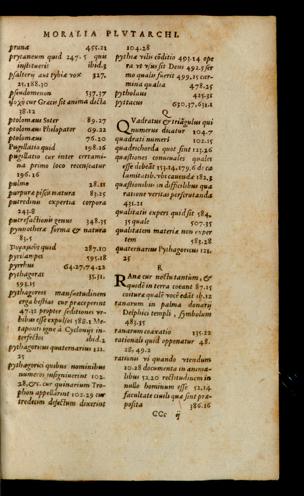 MORALIA PLVTARCHI.
prunæ 455.21
prytaneum quid 247.5 quis
instituerit ibid.3
psalteria aut tybiæ vox 327.
21.188.30
pseudomenon 537.37
ψυχὴ cur Græci sit anima dicta
38.12
ptolomæus Soter 89.27
ptolomæus Philopater 69.22
ptolomæus 76.20
Pugillatio quid 198.16
pugillatio cur inter certami-
na primo loco recenseatur
196.16
pulmo 28.11
purpuræ piscis natura 83.25
putredini expertia corpora
243.8
putrefactionis genus 348.35
pynnothera forma & natura
83.5
287.10
pyriampes 595.18
pyrrhus 64.27.74.22
pythagoras 35.31.
595.15
pythagoras mansuetudinem
erga bestias cur præceperit
47.32 propter seditiones vr-
bibus esse expulsos 588.1 Me-
taponti igne à Cyloniis in-
terfectos ibid.2
pythagoricus quaternarius 121.
25
pythagorici quibus nominibus
numeros insigniuerint 102.
28.&c. cur quinarium Tro-
phon appellarint 102.29 cur
tredecim defectum dixerint
104.28
pythiæ vilis côditio 493.14 ope
ra vt vsus sit Deus 492.5 ser
mo qualis fuerit 499.15 car-
mina qualia 478.25
pytholaus 425.32
pyttacus 630.37,631.1
Q
QVadratus & triãgulus qui
numerus dicatur 104.7
quadrati numeri 102.15
quadrichorda quot sint 123.26
quæstiones conuiuales quales
esse debeãt 153.14,179.6 de ca
lumitatib. vbi cauendæ 182.8
quæstionibus in difficilibus qua
ratione veritas perscrutanda
431.21
qualitati experi quid sit 584.
35 quale 507.35
qualitatem materia non exper
tem 583.28
quaternarius Pythagoricus 121.
25
R
RAnæ cur noctu tantum, &
quidẽ in terra coeant 87.15
coituræ qualẽ vocẽ edãt ib.12
ranarum in palma donarij
Delphici templi, symbolum
485.35
ranarum coaxatio 135.22
rationali quid opponatur 48.
18.49.2
rationis vi quando vtendum
10.28 documenta in anima-
libus 52.20 rectitudinem in
nullo hominum esse 52.14
facultate ciuili quæ sint præ-
posita 386.16
CCc ij